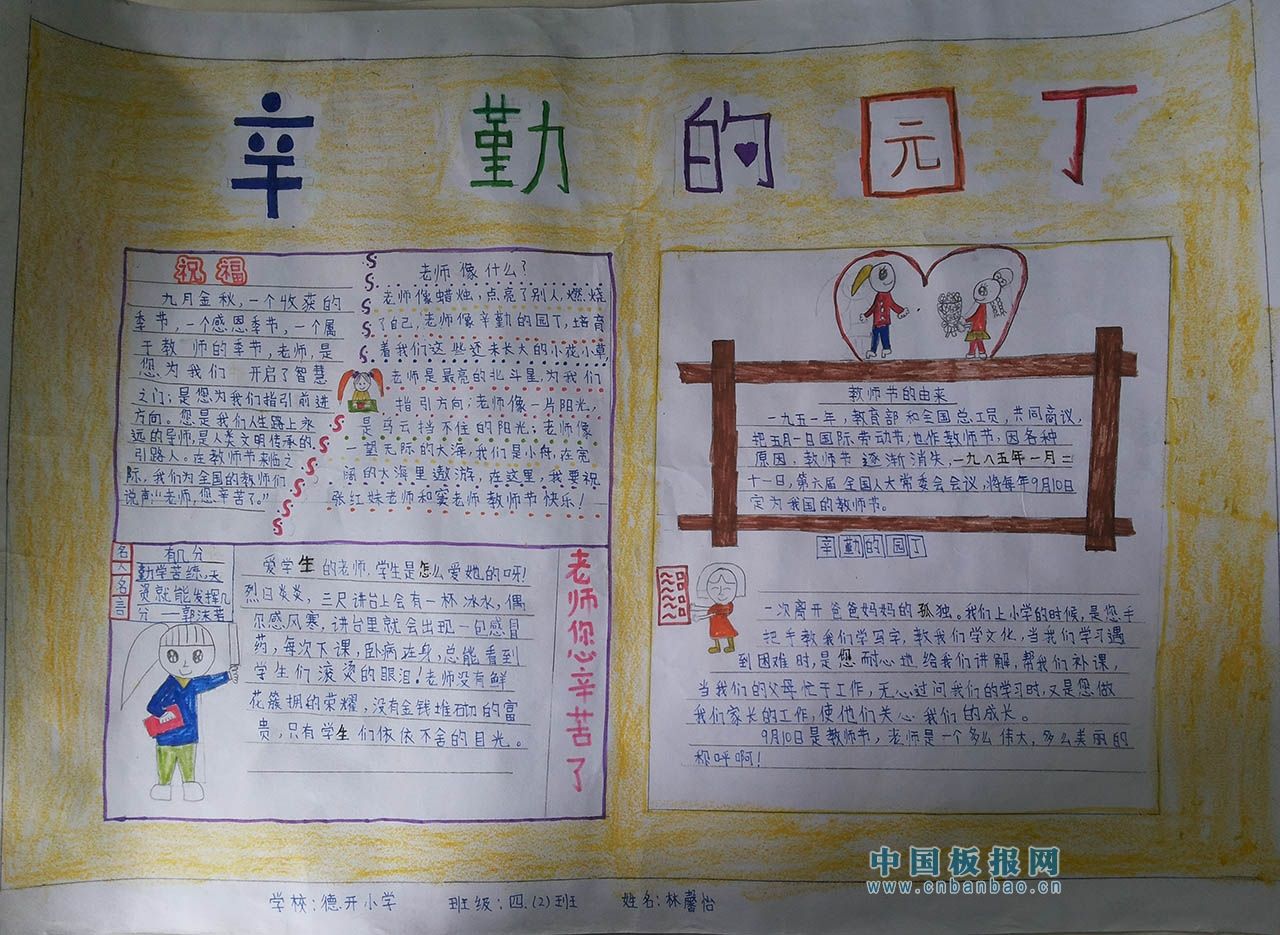 辛勤的园丁
祝福
九月金秋,一个收获的
季节,一个感恩季节,一个属
于教师的季节,老师,是
您为我们开启了智慧
之门;是您为我们指引前进
方向。您是我们人生路上永
远的导师,是人类文明传承的
引路人。在教师节来临之
际,我们为全国的教师们
说声“老师,您辛苦了。”
老师像什么?
老师像蜡烛,点亮了别人,燃烧
了自己,老师像辛勤的园丁,培育
着我们这些还未长大的小花小草,
老师是最亮的北斗星,为我们
指引方向;老师像一片阳光,
是乌云挡不住的阳光;老师像
一望无际的大海,我们是小舟,在宽
阔的大海里遨游,在这里,我要祝
张红妹老师和窦老师教师节快乐!
名人名言
有几分
勤学苦练,天
资就能发挥几
分 —郭沫若
爱学生的老师,学生是怎么爱她的呀!
烈日炎炎,三尺讲台上会有一杯冰水,偶
尔感风寒,讲台里就会出现一包感冒
药,每次下课,卧病在身,总能看到
学生们滚烫的眼泪!老师没有鲜
花簇拥的荣耀,没有金钱堆砌的富
贵,只有学生们依依不舍的目光。
老师您辛苦了
教师节的由来
一九五一年,教育部和全国总工会,共同商议,
把五月一日国际劳动节,也作教师节,因各种
原因,教师节逐渐消失,一九八五年一月二
十一日,第六届全国人大常委会会议,将每年9月10日
定为我国的教师节。
辛勤的园丁
一次离开爸爸妈妈的孤独。我们上小学的时候,是您手
把手教我们学写字,教我们学文化,当我们学习遇
到困难时,是您耐心地给我们讲解,帮我们补课,
当我们的父母忙于工作,无心过问我们的学习时,又是您做
我们家长的工作,使他们关心我们的成长。
9月10日是教师节,老师是一个多么伟大,多么美丽的
称呼啊!
中国板报网
www.cnbanbao.cn
学校:德开小学 班级:四.(2)班 姓名:林馨怡